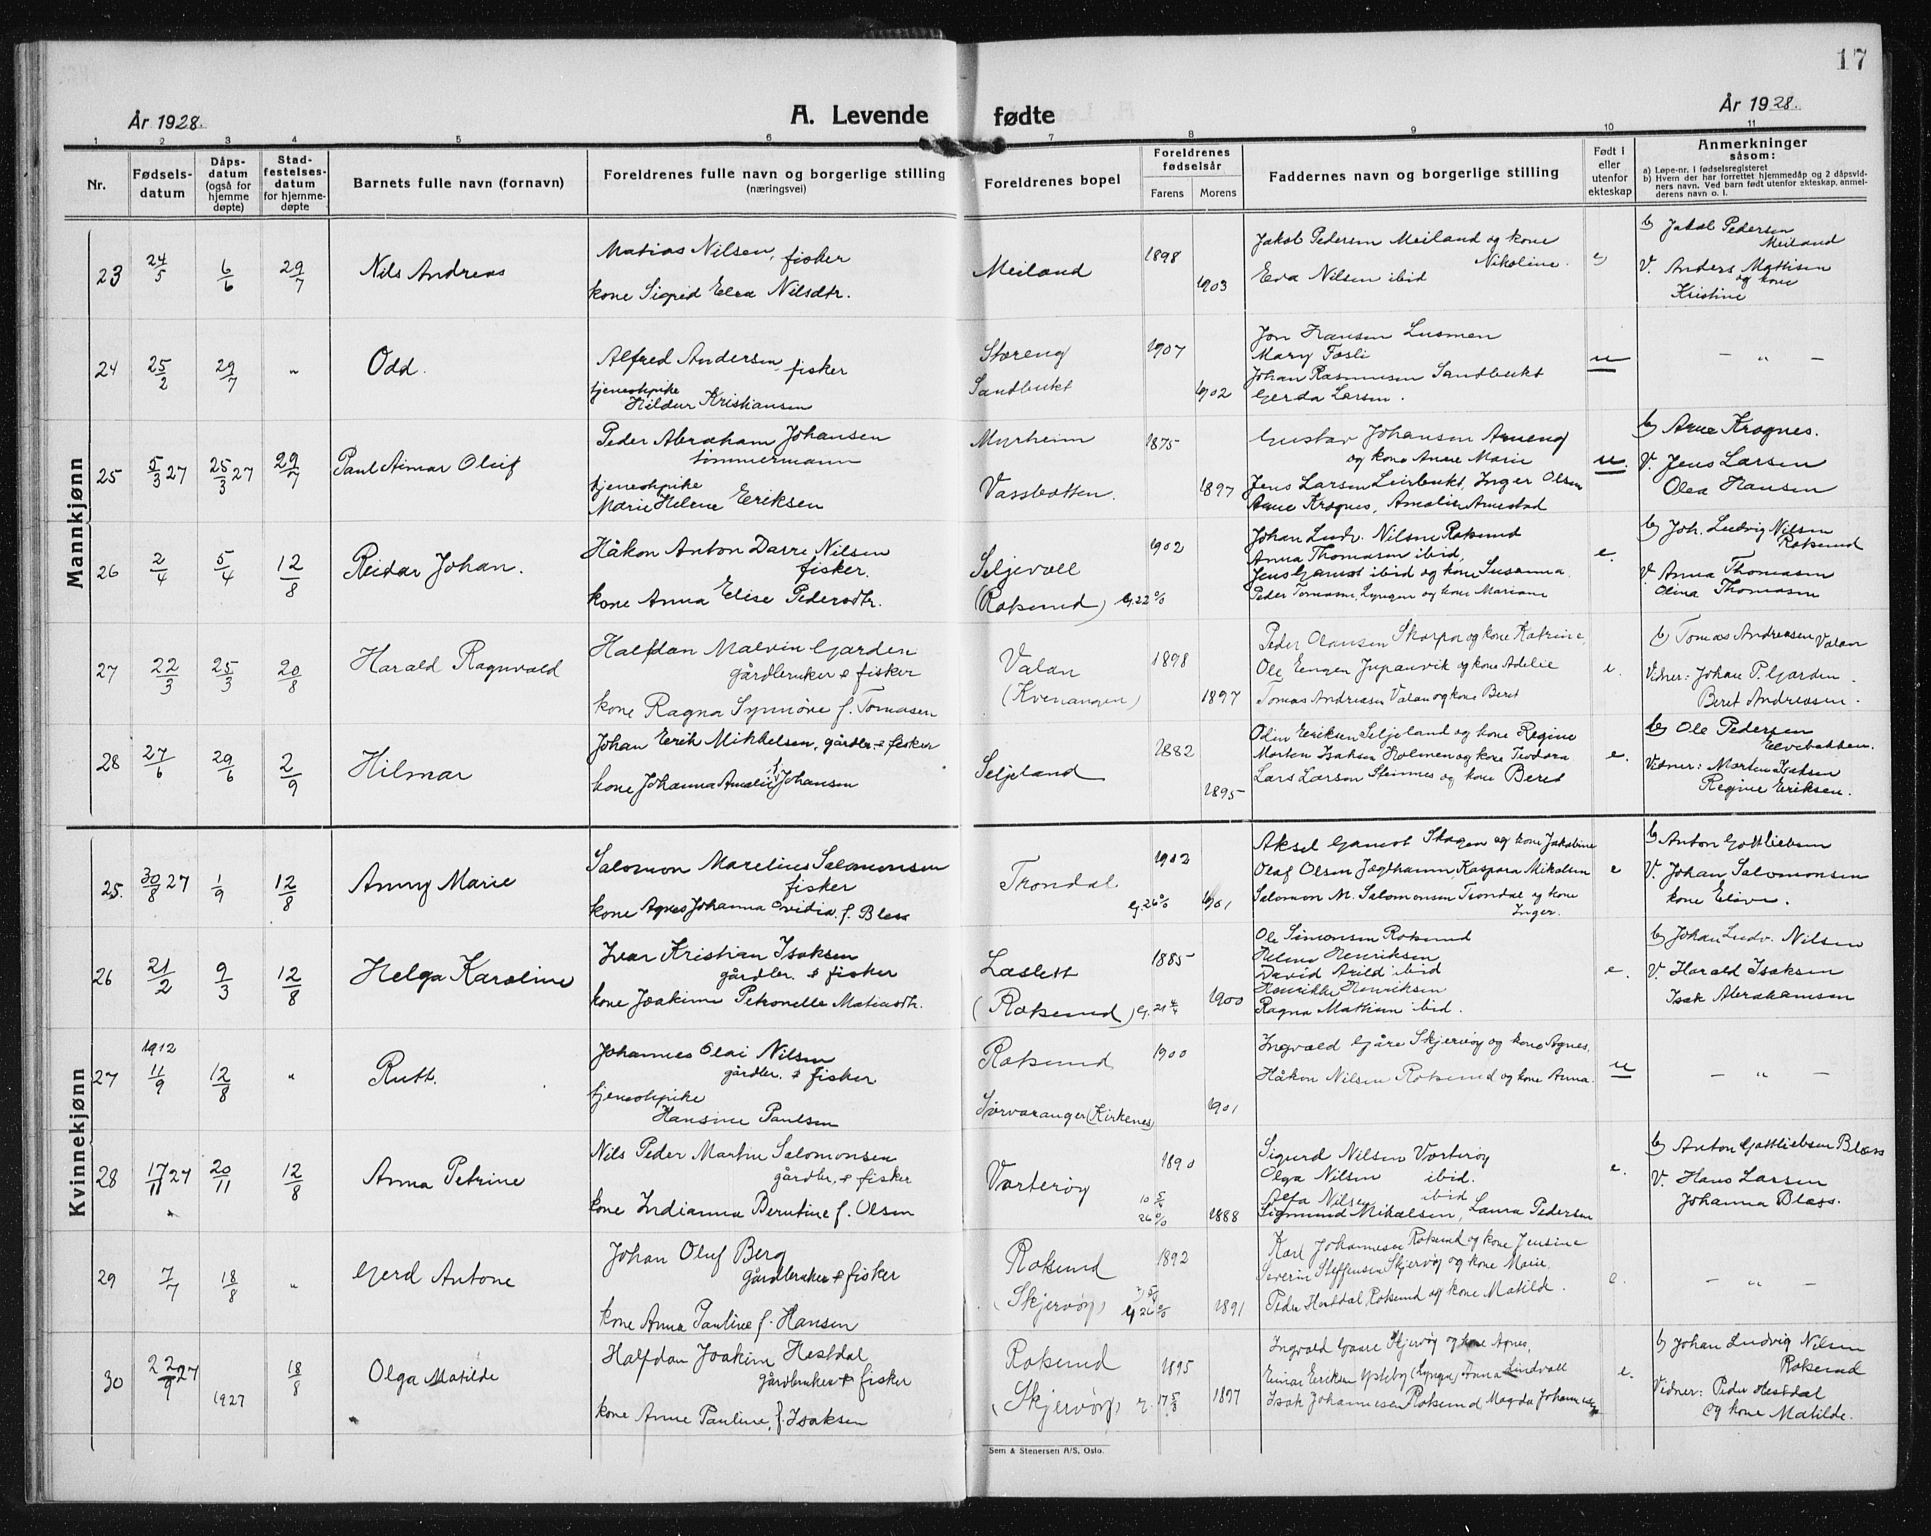 17
År 1928.
A. Levende fødte
År 1928.
1 2 3 4 5 6 7 8 9 10 11
Nr.
Fødsels-
datum
Dåps-
datum
(også for
hjemme
døpte)
Stad-
festelses-
datum
for hjemme-
døpte
Barnets fulle navn (fornavn)
Foreldrenes fulle navn og borgerlige stilling
(næringsvei)
Foreldrenes bopel
Foreldrenes
fødselsår
Farens Morens
Faddernes navn og borgerlige stilling
Født i
eller
utenfor
ekteskap
Anmerkninger
såsom:
a) Løpe-nr. i fødselsregisteret
b) Hvem der har forrettet hjemmedåp og 2 dåpsvid-
ners navn. Ved barn født utenfor ekteskap, anmel-
derens navn o. l.
Mannkjønn
23 24/5 6/6 29/7 Nils Andreas
Matias Nilsen, fisker
kone Sigrid Elea Nilsdtr.
Meiland
1898
1903
Jakob Pedersen Meiland og kone
Nikoline.
Eva Nilsen ibid
e
b) Jakob Pedersen
Meiland
V. Anders Mattisen
og kone
Kristine
24 25/2 29/7 " Odd.
Alfred Andersen, fisker
tjenestepike
Hildur Kristiansen
Storeng
Sandbukt
1907
1902
Jon Hansen Lusmen
Mary Fosli
Johan Rasmussen Sandbukt
Gerda Larsen.
u
— " —
25 5/3 27 25/3 27 29/7 Paul Aimar Oluf
Peder Abraham Johansen
tømmermann
tjenestepike
Marie Helene Eriksen
Myrheim
Vassbotten.
1875
1897
Gustav Johansen Arneng
og kone Anne Marie
Jens Larsen Leirbukt, Inger Olsen
Arne Krognes, Amalie Arnestad
u.
b) Arne Krognes.
V. Jens Larsen
Olea Hansen
26 2/4 5/4 12/8 Reidar Johan.
Håkon Anton Darre Nilsen
fisker.
kone Anna Elise Pedersdtr.
Seljevoll
(Rotsund) G. 22
1902
Johan Ludv. Nilsen Rotsund
Anna Thomasen ibid,
Jens Gamst ibid og kone Susanna.
Peder Tomasen, Lyngen og kone Mariane
e.
b) Joh. Ludvig Nilsen
Rotsund
V. Anna Thomasen
Olina Thomasen
27 22/3 25/3 20/8 Harald Ragnvald
Halfdan Malvin Garden
gårdbruker & fisker
kone Ragna Synnøve f. Tomasen
Valan
(Kvenangen)
1898
1897
Peder Olausen Skorpa og kone Katrine,
Ole Eengen Jupanvik og kone Adelie
Tomas Andreasen Valan og kone Beret
e.
b) Tomas Andreasen Valan
Vidner: Johan P. Garden.
Beret Andreasen.
28 27/6 29/6 2/9 Hilmar
Johan Erik Mikkelsen, gårdbr. & fisker
kone Johanna Amalie f. Johansen
Seljeland
1882
1895
Odin Eriksen Seljeland og kone Regine
Morten Isaksen Holmen og kone Teodora
Lars Larsen Steinnes og kone Beret
e.
b) Ole Pedersen
Elvebakken.
Vidner: Morten Isaksen
Regine Eriksen.
Kvinnekjønn
25. 30/8 27 1/9 12/8 Anny Marie
Salomon Marelius Salomonsen
fisker
kone Agnes Johanna Ovidia f. Bless
Trondal
G. 26
1902
1901
Aksel Gamst Skogen og kone Jakobine
Olaf Olsen Jægthamn, Kaspara Mikalsen
Salomon M. Salomonsen Trondal og kone
Inger.
e
b) Anton Gottliebsen
V. Johan Salomonsen
kone Elive.
26 21/2 9/3 12/8 Helga Karoline
Ivar Kristian Isaksen
gårdbr. & fisker
kone Joakime Petronelle Matiasdtr.
Laslett
(Rotsund) G. 21 4/4
1885
1900
Ole Simonsen Rotsund
Helene Henriksen
David Arild ibid
Henrikke Henriksen
Ragna Mathisen ibid.
e.
b) Johan Ludv. Nilsen
V. Harald Isaksen
Isak Abrahamsen
27 1912 11/9 12/8 " Rutt.
Johannes Olai Nilsen
gårdbr. & fisker
tjenestepike
Hansine Paulsen
Rotsund
Sørvaranger (Kirkenes)
1900
1901
Ingvald Gåre Skjervøy og kone Agnes,
Håkon Nilsen Rotsund og kone Anna.
u
— " —
28 17/11 27 20/11 12/8 Anna Petrine
Nils Peder Martin Salomonsen
gårdbr. & fisker
kone Indianna Berntine f. Olsen
Vorterøy
1890
1888
Sigurd Nilsen Vorterøy
Olga Nilsen ibid.
Alfa Nilsen ibid
Sigmund Mikalsen, Laura Pedersen
e.
b) Anton Gottliebsen Blæss
V. Hans Larsen
Johanna Blæss.
29 7/7 18/8 " Gerd Antone
Johan Oluf Berg
gårdbruker & fisker
kone Anna Pauline f. Hansen
Rotsund
(Skjervøy)
1892
1891
Karl Johannesen Rotsund og kone Jensine
Severin Steffensen Skjervøy og kone Marie,
Peder Hestdal Rotsund og kone Matilde.
e.
— " —
30 22/9 27 1927 18/8 Olga Matilde
Halfdan Joakim Hestdal
gårdbruker & fisker
kone Anne Pauline, f. Isaksen
Rotsund
(Skjervøy) G. 17 5/8
1895
1897
Ingvald Gaare Skjervøy og kone Agnes,
Einar Eriksen Ysteby (Lyngen) Anna Lindvall
Isak Johannesen Rotsund Magda Johannesen
e.
b) Johan Ludvig Nilsen
Rotsund
Vidner: Peder Hestdal
og kone Matilde.
Sem & Stenersen A/S, Oslo.